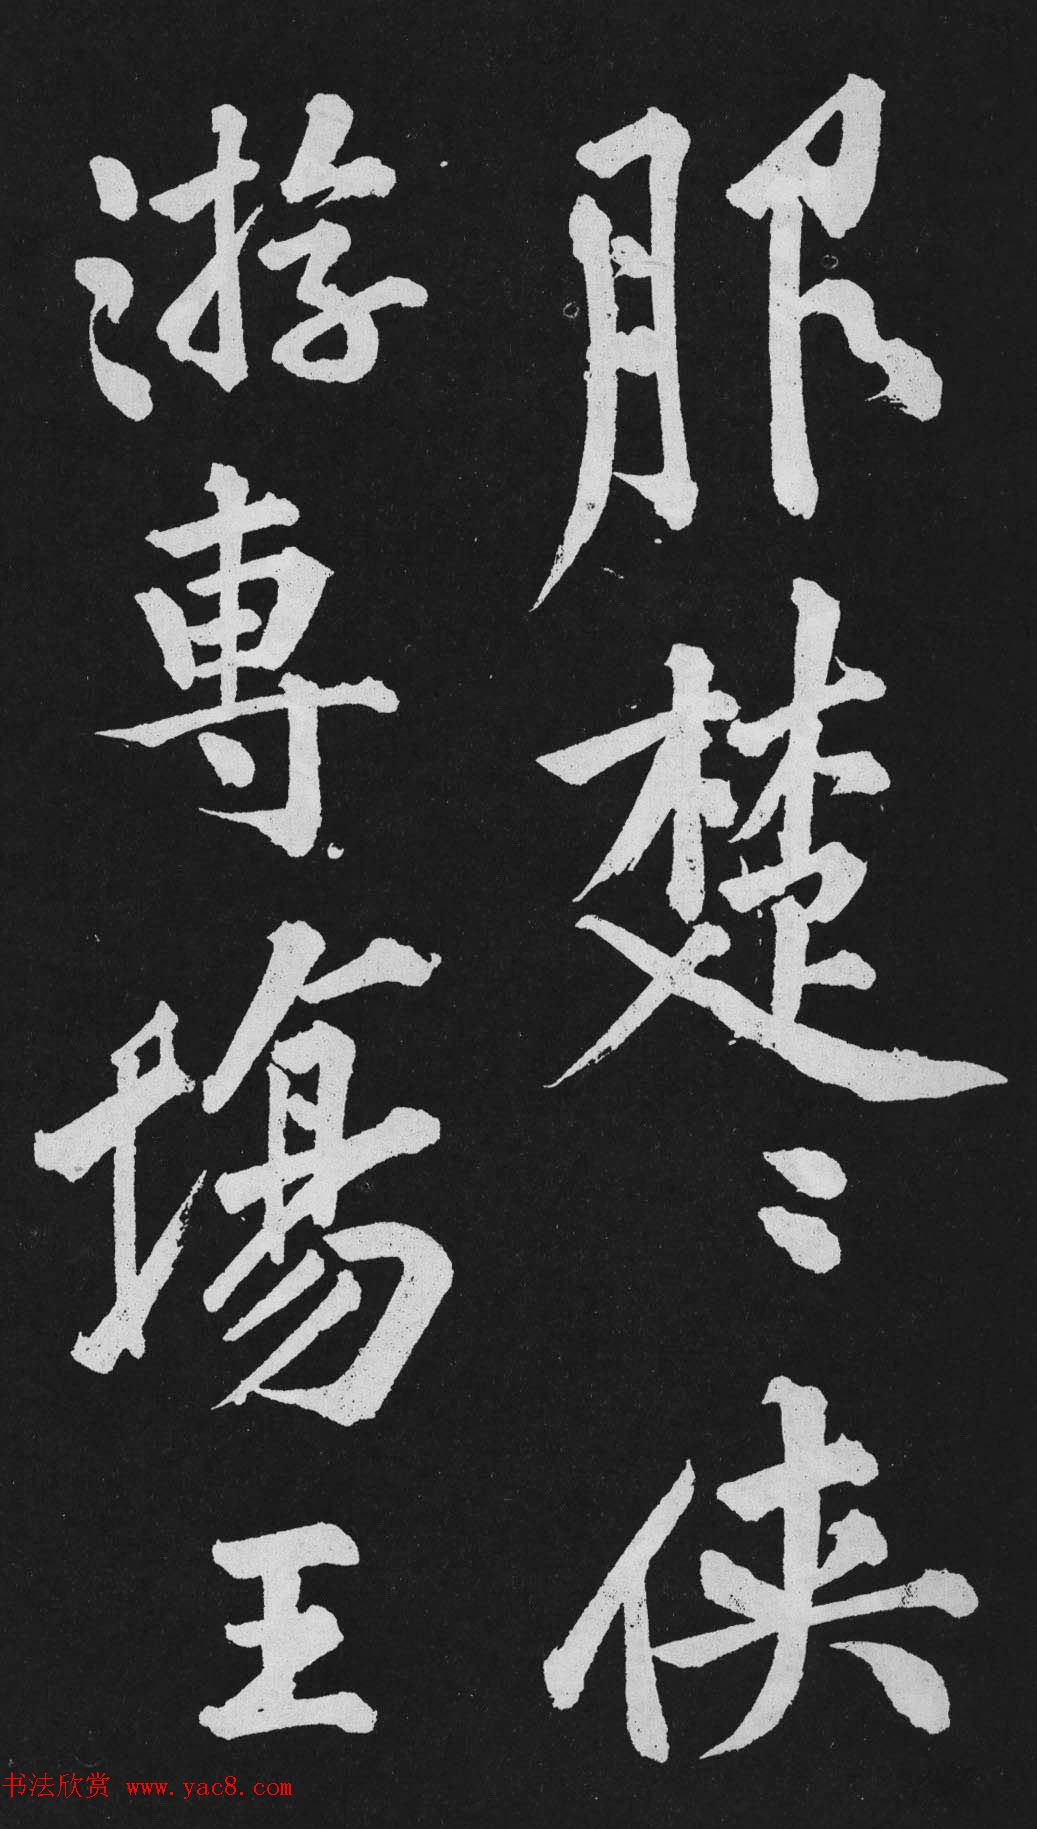 服楚〻俠
游專場王
书法欣赏 www.yac8.com